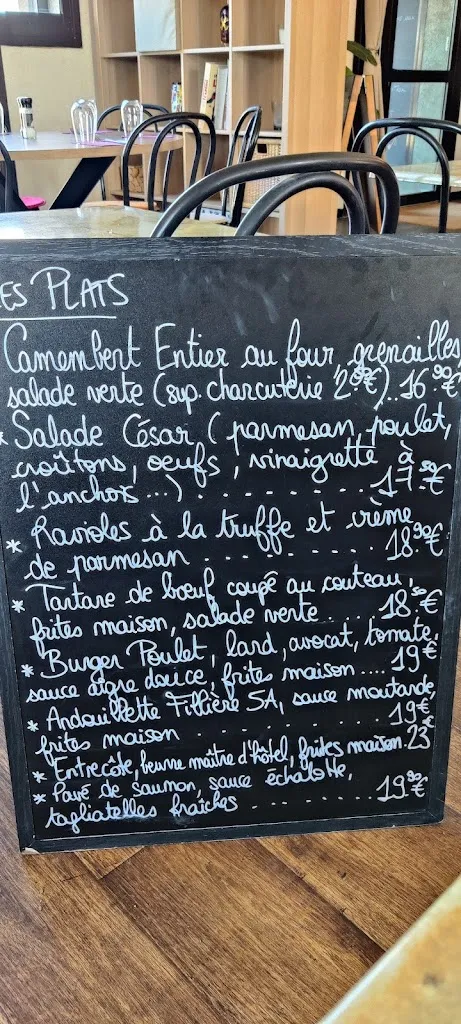 ES PLATS
Camembert Entier au four, grenailles
salade verte (sup. charcuterie 2.00€)..16.90€
* Salade César (parmesan, poulet,
croûtons, oeufs, vinaigrette à
l'anchois ...) . . . . . . . . 17.50€
* Ravioles à la truffe et crème
de parmesan . . . . . . . . . 18.90€
* Tartare de bœuf coupé au couteau,
frites maison, salade verte . . . 18.50€
* Burger Poulet, lard, avocat, tomate,
sauce aigre douce, frites maison .... 19€
* Andouillette Fillière 5A, sauce moutarde,
frites maison . . . . . . . . . 19€
* Entrecôte, beurre maître d'hôtel, frites maison. 23€
* Pavé de saumon, sauce échalotte,
tagliatelles fraîches . . . . . . . . 19.90€